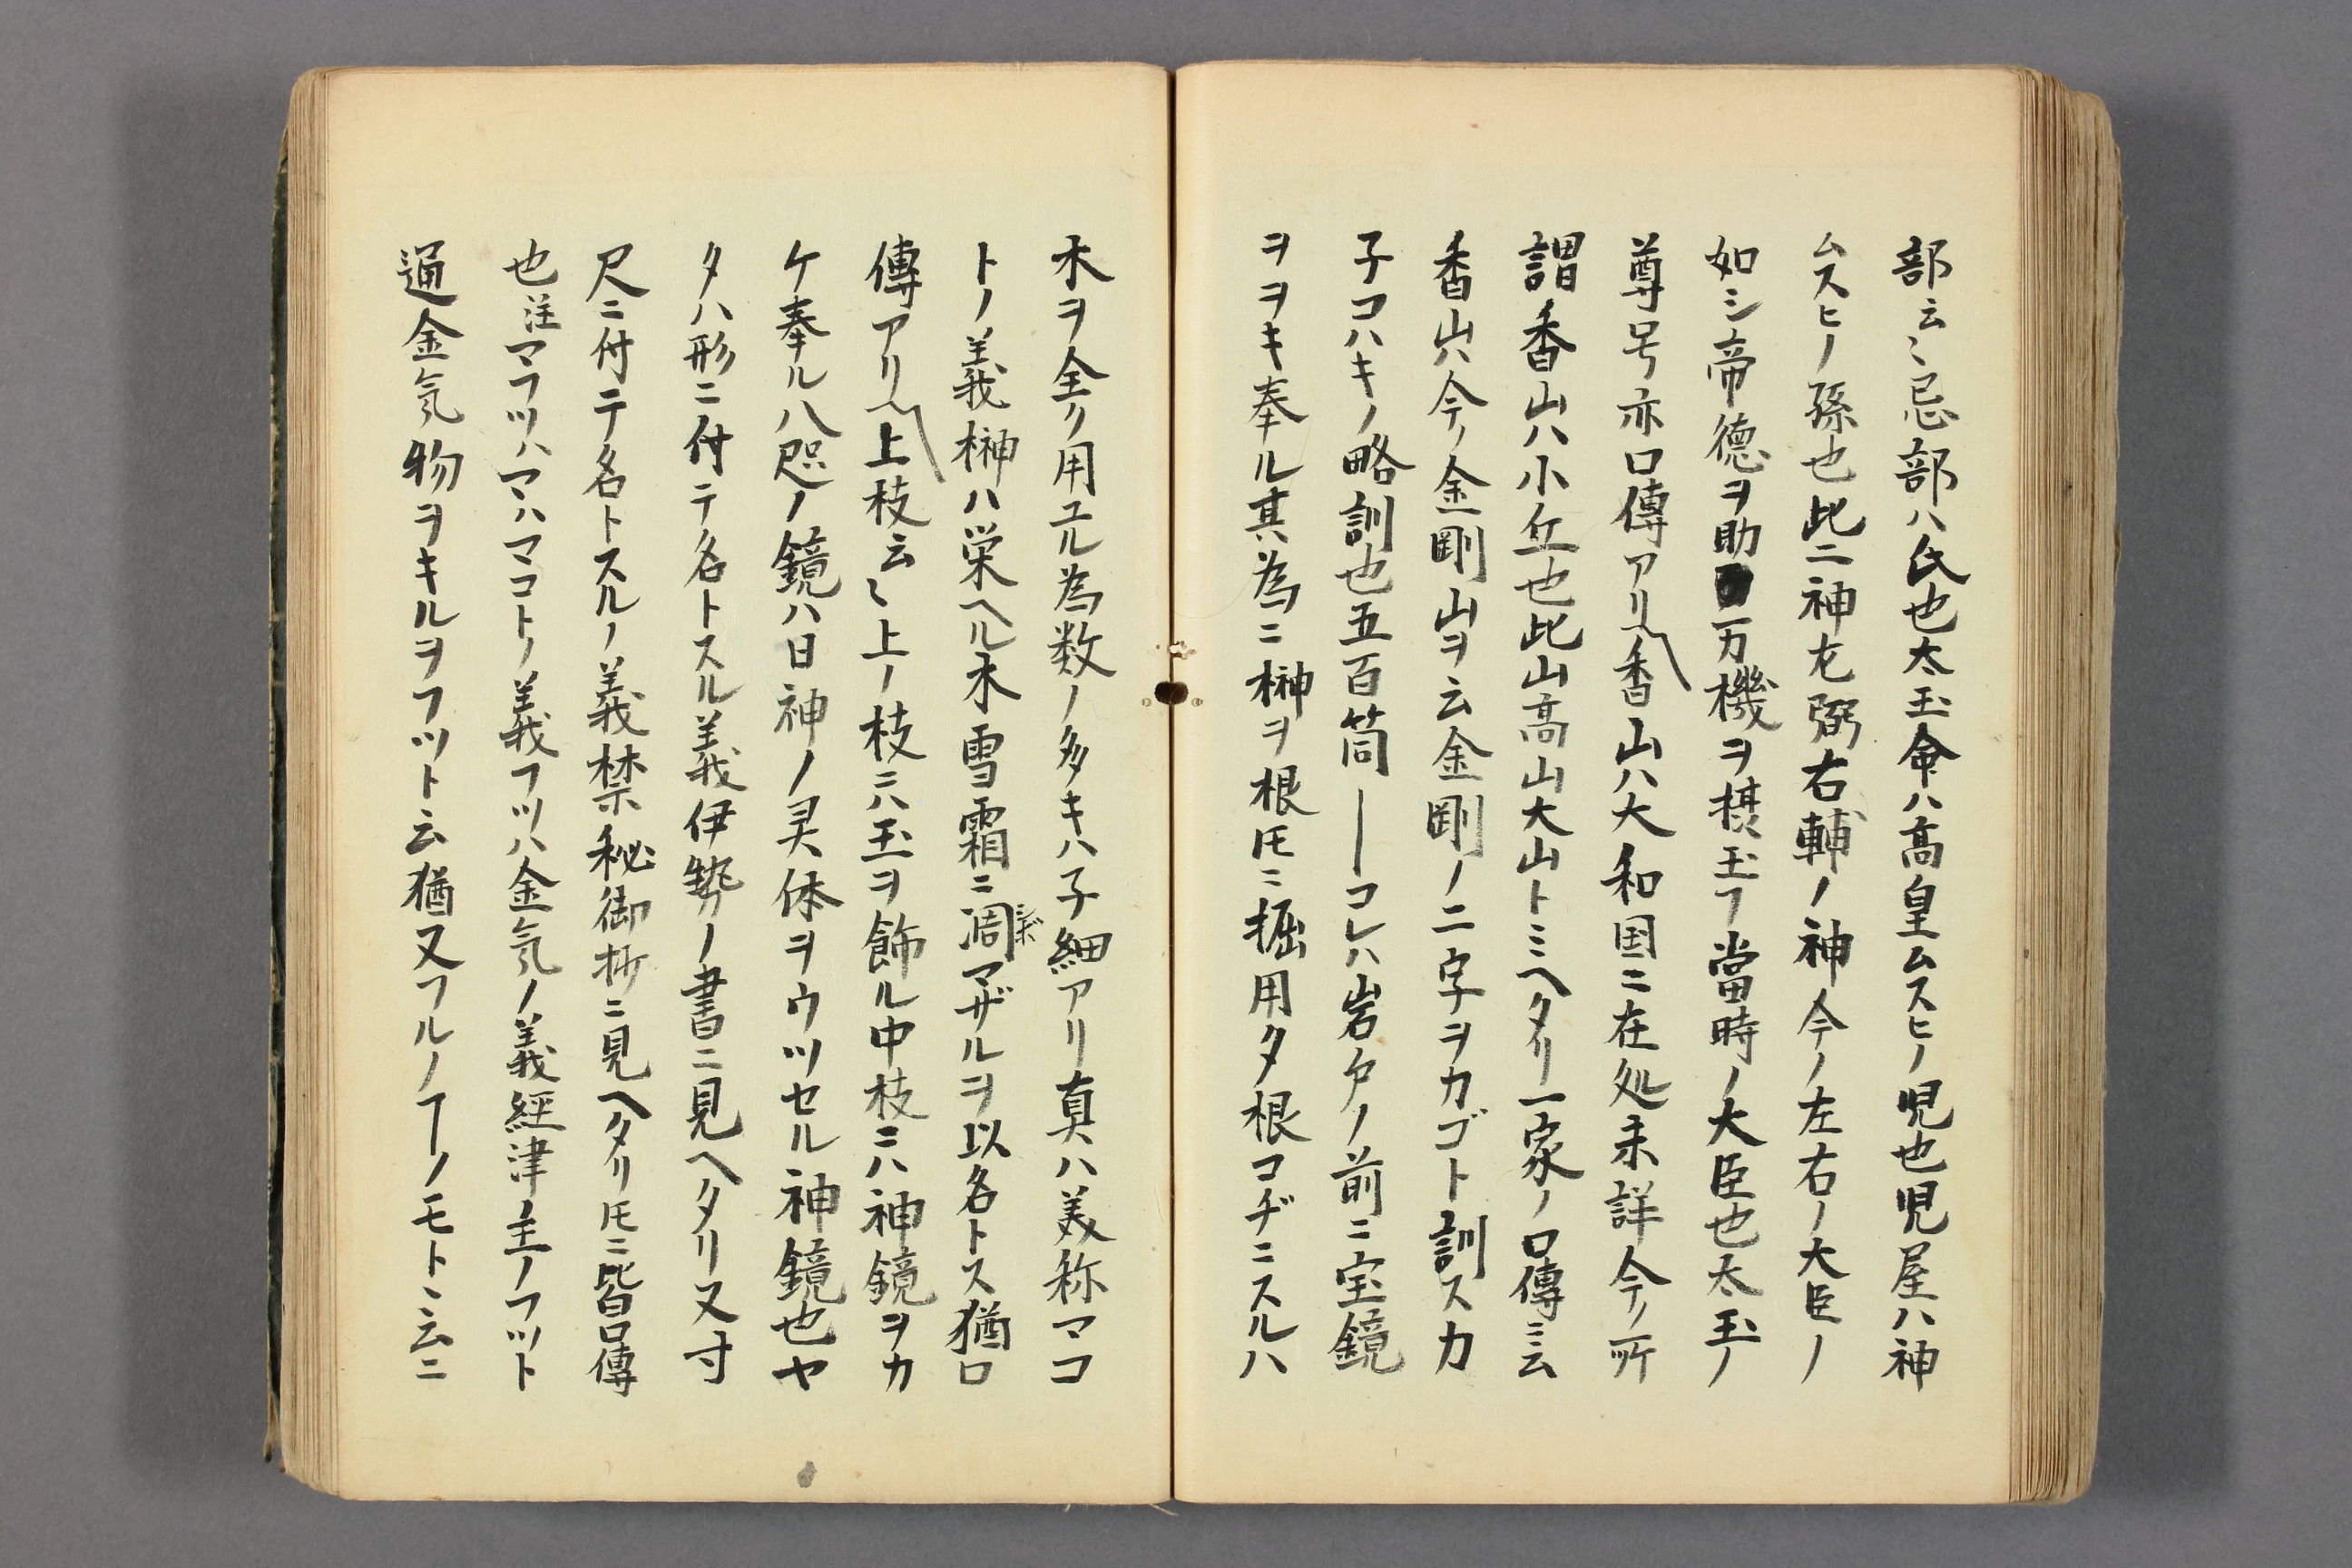 部云〻忌部ハ氏也太玉命ハ高皇ムスヒノ児也児屋ハ神
ムスヒノ孫也此二神左弼右輔ノ神今ノ左右ノ大臣ノ
如シ帝徳ヲ助万機ヲ玉フ當時ノ大臣也太玉ノ
尊号亦口傳アリ香山ハ大和国ニ在処未詳今ノ所
謂香山ハ小丘也此山高山大山トミヘタリ一家ノ口傳ニ云
香山ハ今ノ金剛山ヲ云金剛ノ二字ヲカゴト訓スカ
子コハキノ略訓也五百筒―コレハ岩戸ノ前ニ宝鏡
ヲヲキ奉ル其為ニ榊ヲ根𪜈ニ掘用タ根コヂニスルハ
木ヲ全ク用ユル為数ノ多キハ子細アリ真ハ美称マコ
トノ義榊ハ栄ヘル木雪霜ニ凋マザルヲ以名トス猶口
傳アリ上枝云〻上ノ枝ニハ玉ヲ飾ル中枝ニハ神鏡ヲカ
ケ奉ル八咫ノ鏡ハ日神ノ灵体ヲウツセル神鏡也ヤ
タハ形ニ付テ名トスル義伊勢ノ書ニ見ヘタリ又寸
尺ニ付テ名トスルノ義禁秘御抄ニ見ヘタリ𪜈ニ皆口傳
也注マフツハマハマコトノ義フツハ金気ノ義經津主ノフツト
通金気物ヲキルヲフツト云猶又フルノヿノモトニ云ニ